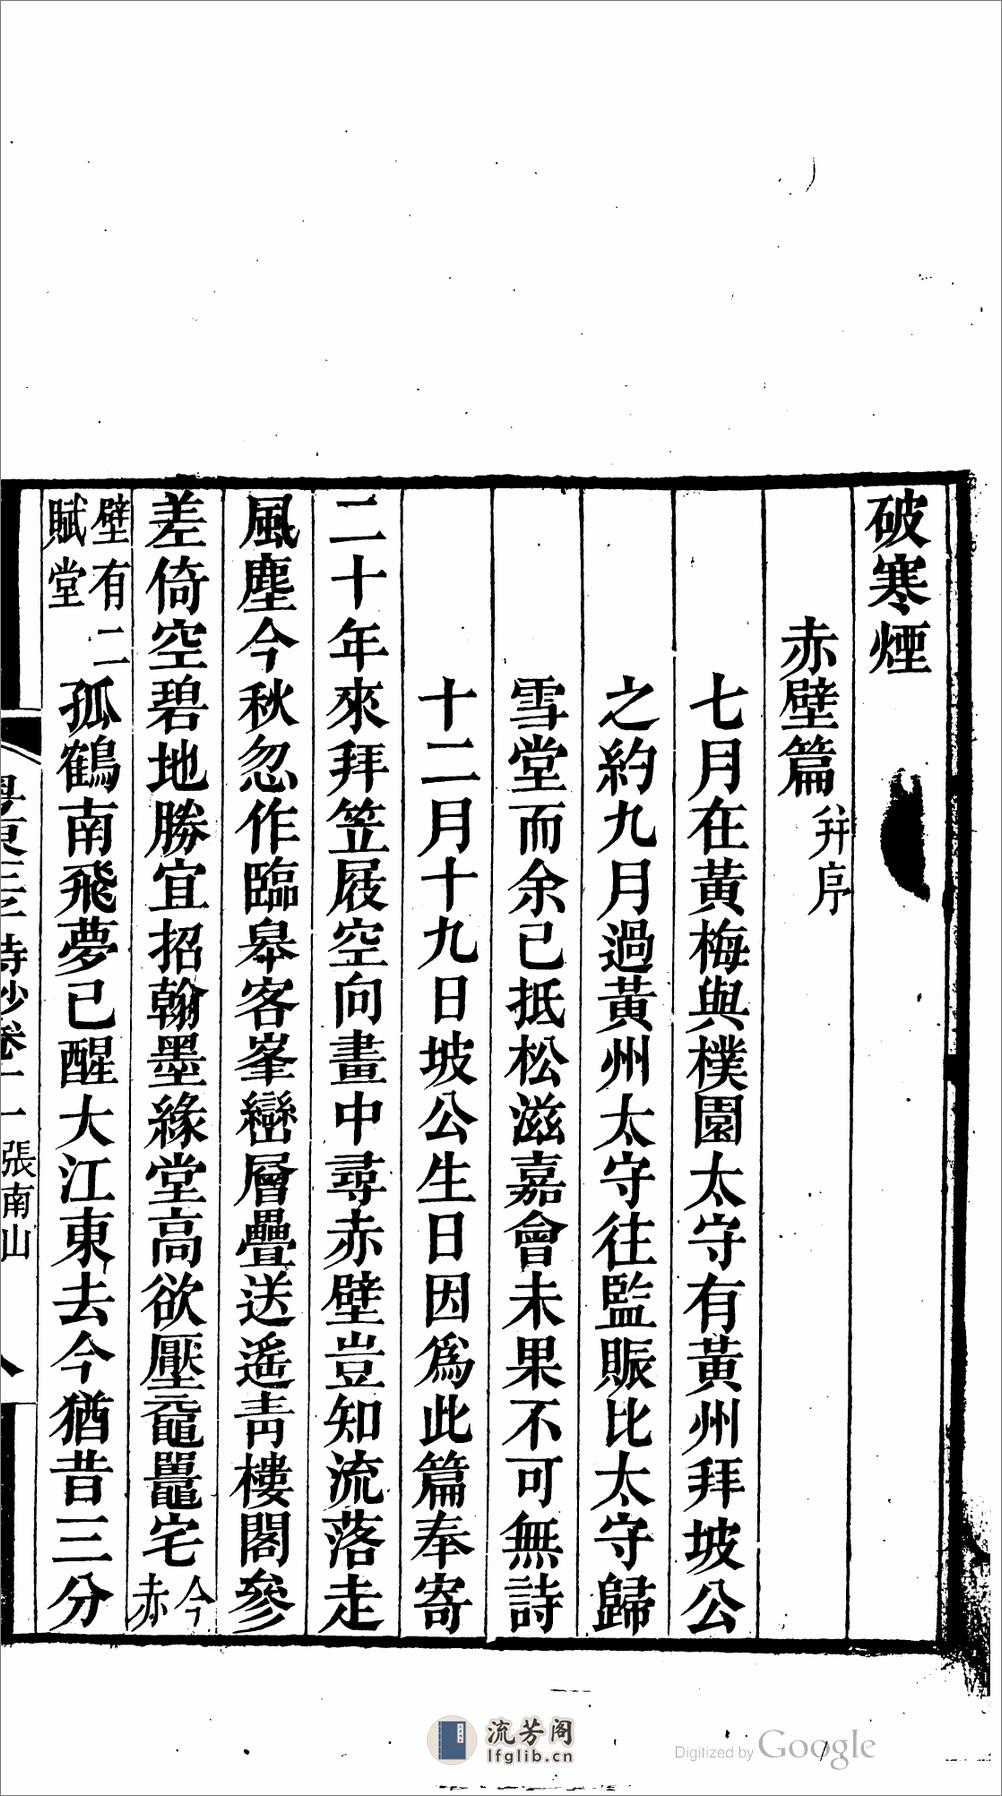 破寒煙
赤壁篇 并序
七月在黃梅與樸園太守有黃州拜坡公
之約九月過黃州太守往監賑比太守歸
雪堂而余已抵松滋嘉會未果不可無詩
十二月十九日坡公生日因為此篇奉寄
二十年來拜笠屐空向畫中尋赤壁豈知流落走
風塵今秋忽作臨皋客峯巒層疊送遙青樓閣參
差倚空碧地勝宜招翰墨緣堂高欲壓黿鼉宅 今赤
壁有二賦堂 孤鶴南飛夢已醒大江東去今猶昔三分
粵東三子詩鈔卷十一 張南山 八
流芳阁
lfglib.cn
Digitized by Google